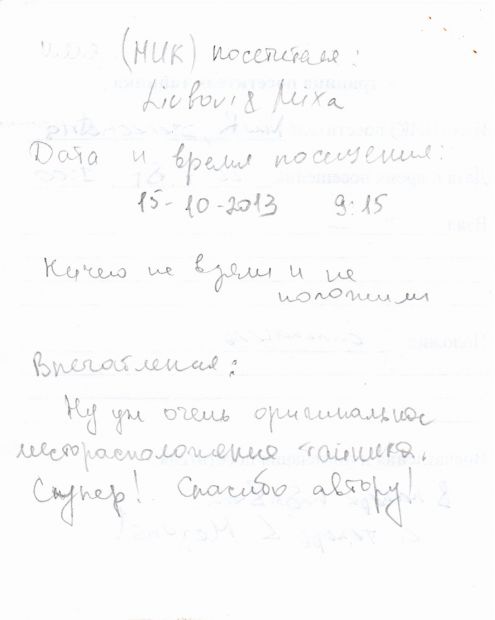 (НИК) посетителя:
Liubovi & Mixa
Дата и время посещения:
15-10-2013 9:15
Ничего не взяли и не
положили
Впечатления:
Ну уж очень оригинальное
месторасположение тайника.
Супер! Спасибо автору!